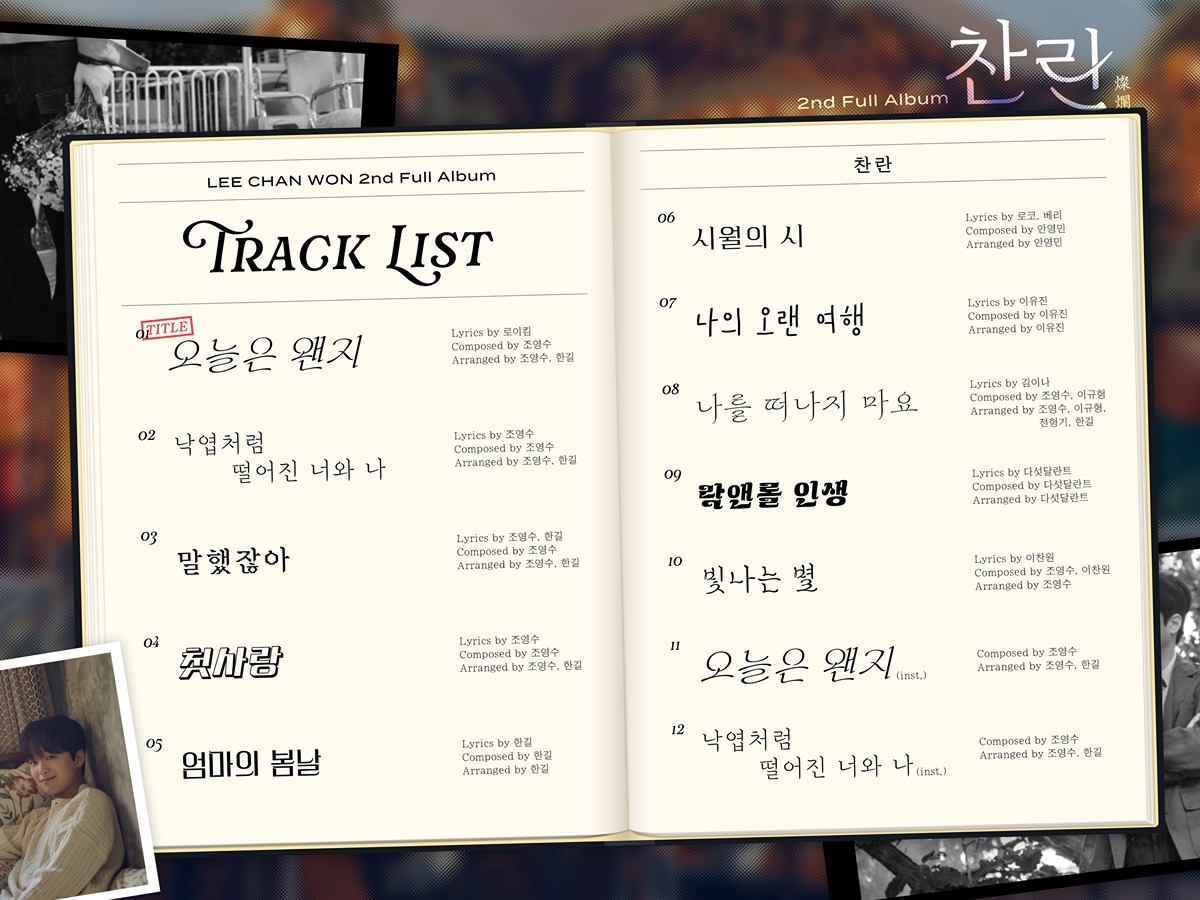 찬란
燦
爛
2nd Full Album
LEE CHAN WON 2nd Full Album
TRACK LIST
01
TITLE
오늘은 왠지
Lyrics by 로이킴
Composed by 조영수
Arranged by 조영수, 한길
02
낙엽처럼
떨어진 너와 나
Lyrics by 조영수
Composed by 조영수
Arranged by 조영수, 한길
03
말했잖아
Lyrics by 조영수, 한길
Composed by 조영수
Arranged by 조영수, 한길
04
첫사랑
Lyrics by 조영수
Composed by 조영수
Arranged by 조영수, 한길
05
엄마의 봄날
Lyrics by 한길
Composed by 한길
Arranged by 한길
찬란
06
시월의 시
Lyrics by 로코, 베리
Composed by 안영민
Arranged by 안영민
07
나의 오랜 여행
Lyrics by 이유진
Composed by 이유진
Arranged by 이유진
08
나를 떠나지 마요
Lyrics by 김이나
Composed by 조영수, 이규형
Arranged by 조영수, 이규형,
전형기, 한길
09
락앤롤 인생
Lyrics by 다섯달란트
Composed by 다섯달란트
Arranged by 다섯달란트
10
빛나는 별
Lyrics by 이찬원
Composed by 조영수, 이찬원
Arranged by 조영수
11
오늘은 왠지 (inst.)
Composed by 조영수
Arranged by 조영수, 한길
12
낙엽처럼
떨어진 너와 나 (inst.)
Composed by 조영수
Arranged by 조영수, 한길